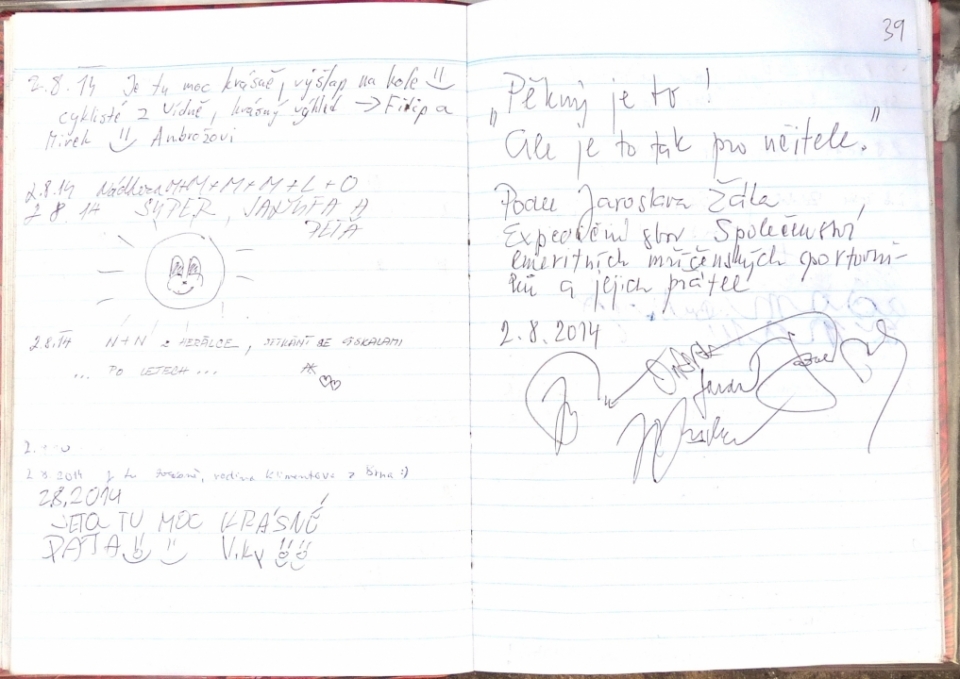 2.8.14 Je tu moc krásně, výšlap na kole
cyklisté z Vídně, krásný výhled → Filip a
Mirek Ambrožovi
2.8.14 Nádhera M+M+M+M+L+O
2 8. 14 SUPER, A
PEŤA
2.8.14 N+N z HERÁLCE, SETKÁNÍ SE SKALAMI
... PO LETECH ...
2.8.2014 rodina Klimentova z Brna :)
2.8.2014
JETO TU MOC KRÁSNÉ
PAŤA Viky
39
„Pěkný je to!
Ale je to tak pro učitele."
Podle Jaroslava Žáka
Expediční sbor Společenství
emeritních mučenských sportovní-
ků a jejich přátel
2.8.2014